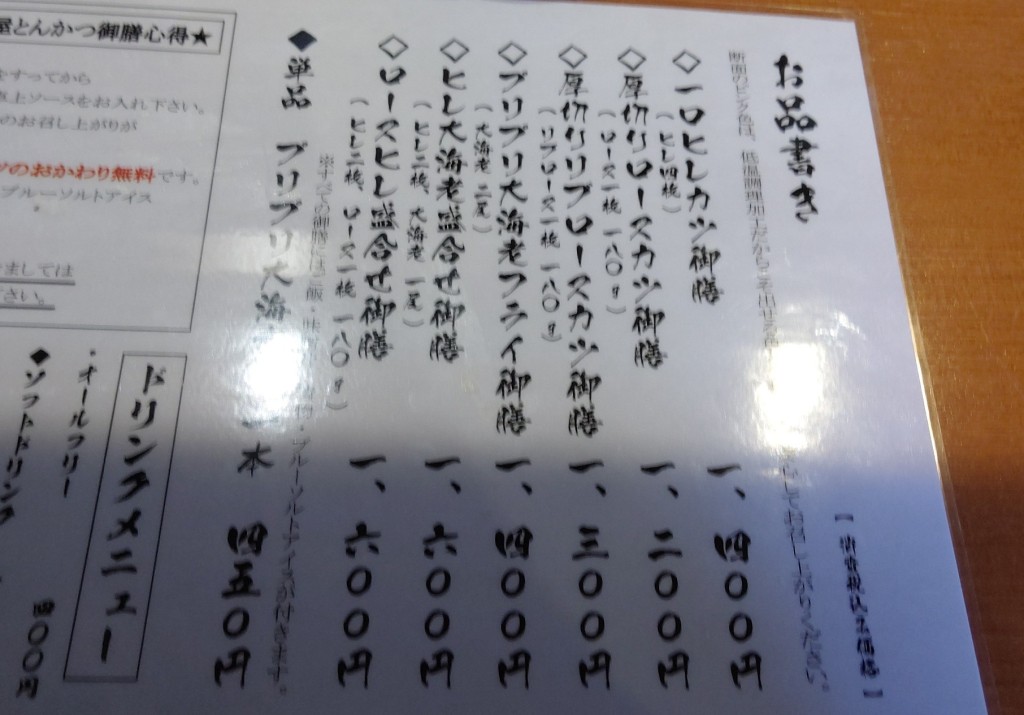 お品書き
【消費税込み価格】
断面のピンク色は、低温調理加工だからこそ出せる
お召し上がりください。
◇一口ヒレカツ御膳 一、四〇〇円
（ヒレ四枚）
◇厚切りロースカツ御膳 一、二〇〇円
（ロース一枚 一八〇g）
◇厚切りリブロースカツ御膳 一、三〇〇円
（リブロース一枚 一八〇g）
◇プリプリ大海老フライ御膳 一、四〇〇円
（大海老 二尾）
◇ヒレ大海老盛合せ御膳 一、六〇〇円
（ヒレ二枚、大海老 一尾）
◇ロースヒレ盛合せ御膳 一、六〇〇円
（ヒレ二枚、ロース一枚 一八〇g）
※すべての御膳にはご飯・味 物・ブルーソルトアイスが付きます。
◆単品 プリプリ大海 一本 四五〇円
屋とんかつ御膳心得★
をすってから
卓上ソースをお入れ下さい。
のお召し上がりが
ツのおかわり無料です。
ブルーソルトアイス
きましては
ださい。
ドリンクメニュー
・オールフリー 四〇〇円
◆ソフトドリンク